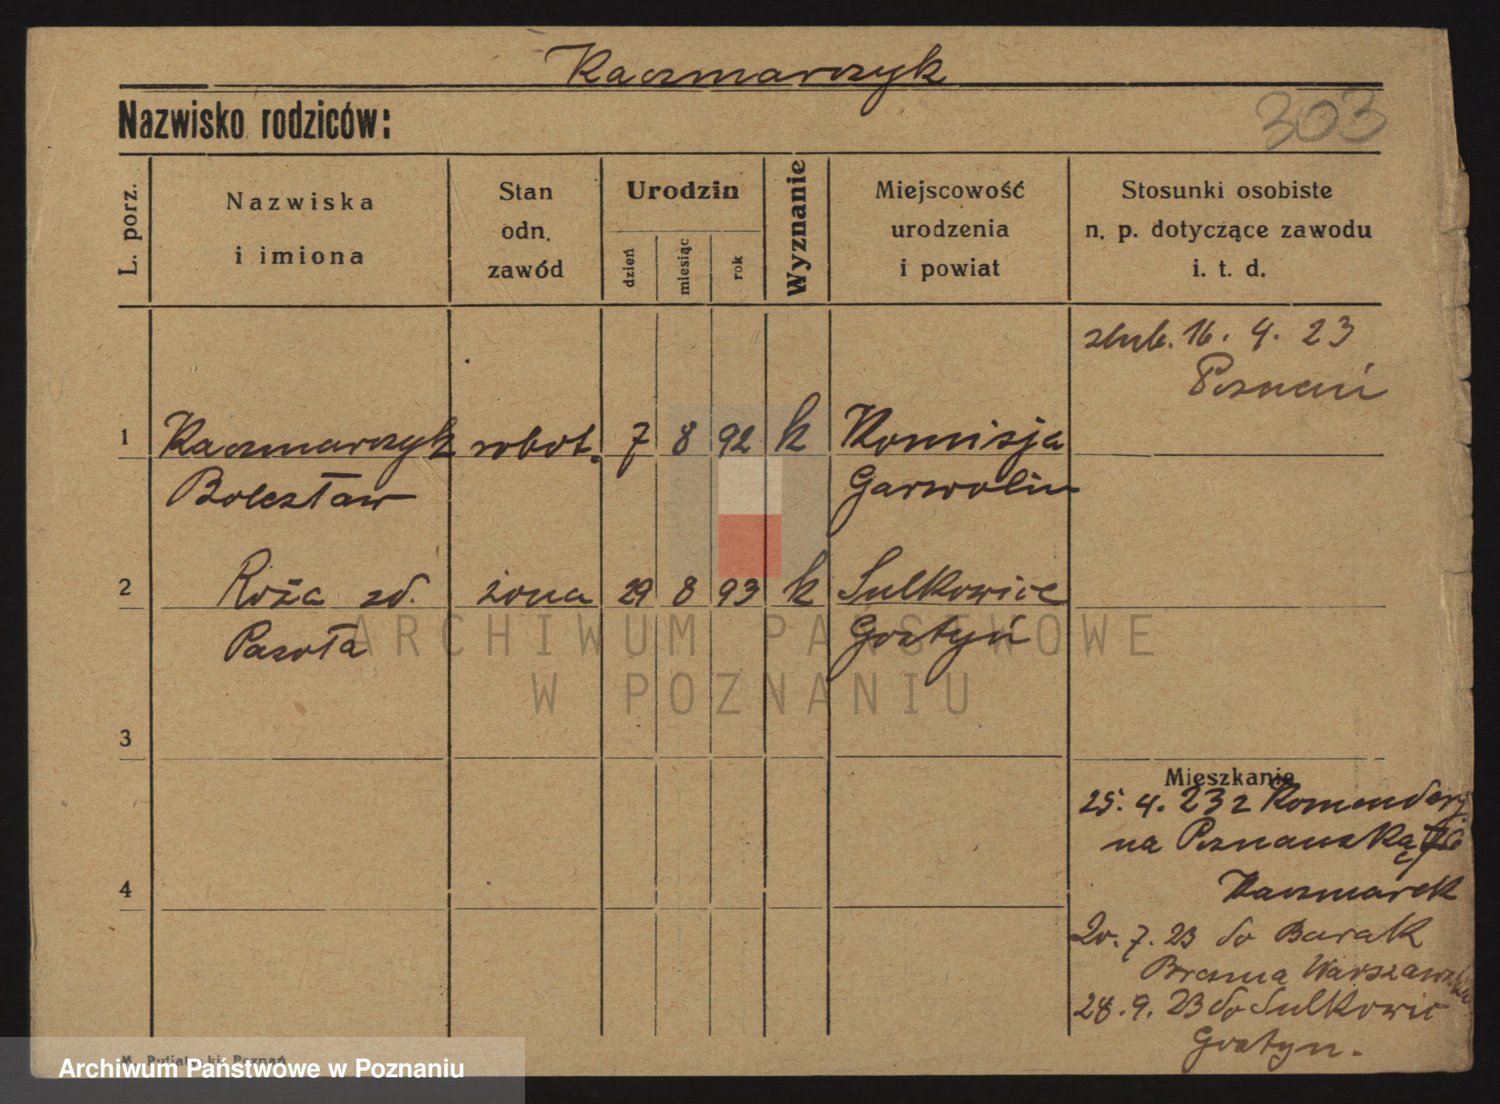 Kaczmarczyk
Nazwisko rodziców:
303
L. porz.
Nazwiska
i imiona
Stan
odn.
zawód
Urodzin
dzień
miesiąc
rok
Wyznanie
Miejscowość
urodzenia
i powiat
Stosunki osobiste
n. p. dotyczące zawodu
i. t. d.
ślub. 16. 4. 23
Poznań
1 Kaczmarczyk robot. 7 8 92 k Komisja
Bolesław Garwolin
2 Róża zd. żona 29 8 93 k Sulkowice
Gostyń
ARCHIWUM PAŃSTWOWE
W POZNANIU
3
Mieszkanie
25. 4. 23 z
na Poznańską
4
Kaczmarek
20. 7. 23 do Barak
Brama
28. 9. 23 do Sulkowic
Gostyn.
Poznań
Archiwum Państwowe w Poznaniu